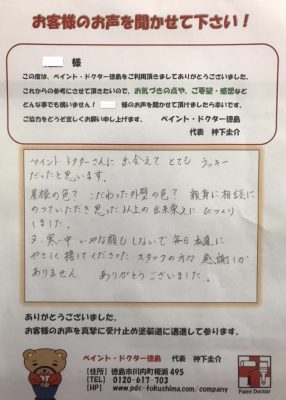 お客様のお声を聞かせて下さい！
様
この度は、ペイント・ドクター徳島をご利用頂きましてありがとうございました。
これからの参考にさせて頂きたいので、お気づきの点や、ご要望・感想など
どんな事でも構いません！ 様のお声を聞かせて頂けましたら幸いです。
ご協力をどうぞ宜しくお願い申し上げます。 ペイント・ドクター徳島
代表 神下圭介
ペイント・ドクターさんに 出会えて とても ラッキー
だったと思います。
屋根の色で こだわった外壁の色で 親身に相談に
のっていただき 思った以上の出来栄えに びっくり
しました。
又、寒い中 いやな顔もしないで 毎日
やさしく接してくださった スタッフの方々 感謝しか
ありません ありがとうございました。
ありがとうございました。
お客様のお声を真摯に受け止め塗装道に邁進して参ります。
ペイント・ドクター徳島 代表 神下圭介
【住所】徳島市川内町榎瀬 495
【TEL】 0120-617-703
【HP】 www.pdc-tokushima.com/company
Paint Doctor